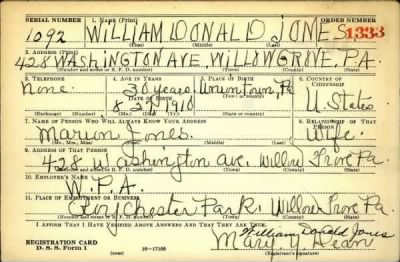 SERIAL NUMBER 1. NAME (Print) ORDER NUMBER
1092 WILLIAM DONALD JONES 1333
(First) (Middle) (Last)
2. ADDRESS (Print)
428 WASHINGTON AVE, WILLOW GROVE, PA.
(Number and street or R. F. D. number) (Town) (County) (State)
3. TELEPHONE 4. AGE IN YEARS 5. PLACE OF BIRTH 6. COUNTRY OF CITIZENSHIP
None. 30 years. Uniontown, Pa U. States.
DATE OF BIRTH
8-27-1910
(Exchange) (Number) (Mo.) (Day) (Yr.) (Town or county) (State or country)
7. NAME OF PERSON WHO WILL ALWAYS KNOW YOUR ADDRESS 8. RELATIONSHIP OF THAT PERSON
Marion Jones. Wife.
(Mr., Mrs., Miss) (First) (Middle) (Last)
9. ADDRESS OF THAT PERSON
428 Washington ave. Willow Grove Pa.
(Number and street or R. F. D. number) (Town) (County) (State)
10. EMPLOYER'S NAME
W.P.A.
11. PLACE OF EMPLOYMENT OR BUSINESS
Chester Park. Willow Grove Pa.
(Number and street or R. F. D. number) (Town) (County) (State)
I AFFIRM THAT I HAVE VERIFIED ABOVE ANSWERS AND THAT THEY ARE TRUE.
William Donald Jones
REGISTRATION CARD
D. S. S. Form 1 16-17105 Mary Dean